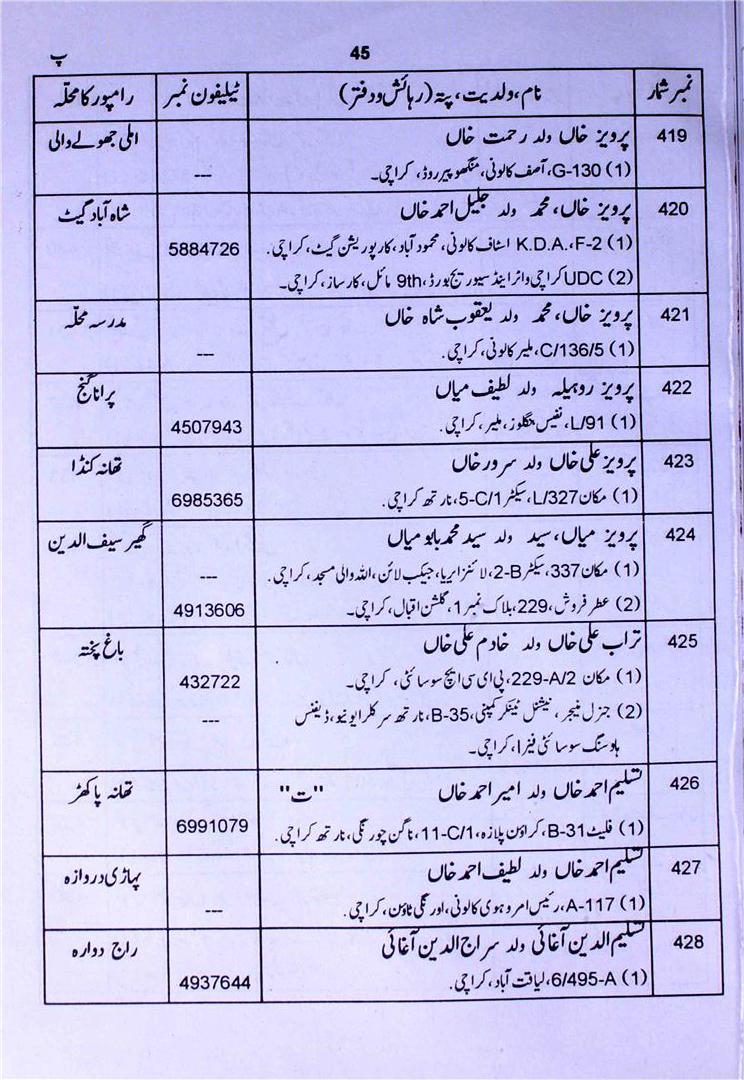 45
پ
نمبر شمار	نام، ولدیت، پتہ (رہائش و دفتر)	ٹیلیفون نمبر	رامپور کا محلّہ
419	پرویز خاں ولد رحمت خاں	املی جھولے والی
(1) G-130، آصف کالونی، منگھوپیر روڈ، کراچی۔	---
420	پرویز خاں، محمد ولد جلیل احمد خاں	شاہ آباد گیٹ
(1) K.D.A.،F-2 اسٹاف کالونی، محمود آباد، کارپوریشن گیٹ، کراچی.	5884726
(2) UDC کراچی واٹر اینڈ سیوریج بورڈ، 9th مائل، کارساز، کراچی۔
421	پرویز خاں، محمد ولد یعقوب شاہ خاں	مدرسہ محلّہ
(1) C/136/5، ملیر کالونی، کراچی.	---
422	پرویز روہیلہ ولد لطیف میاں	پرانا گنج
(1) L/91، نفیس بنگلوز، ملیر، کراچی.	4507943
423	پرویز علی خاں ولد سرور خاں	تھانہ کنڈا
(1) مکان L/327، سیکٹر 5-C/1، نارتھ کراچی.	6985365
424	پرویز میاں، سید ولد سید محمد بابو میاں	گھیر سیف الدین
(1) مکان 337، سیکٹر 2-B، لائنز ایریا، جیکب لائن، اللہ والی مسجد، کراچی.	---
(2) عطر فروش، 229، بلاک نمبر 1، گلشن اقبال، کراچی۔	4913606
425	تراب علی خاں ولد خادم علی خاں	باغ پختہ
(1) مکان 229-A/2، پی ای سی ایچ سوسائٹی، کراچی۔	432722
(2) جنرل منیجر، نیشنل ٹینکر کمپنی، 35-B، نارتھ سرکلر ایونیو، ڈیفنس	---
ہاوسنگ سوسائٹی فیز I، کراچی۔
426	تسلیم احمد خاں ولد امیر احمد خاں "ت"	تھانہ پاکھڑ
(1) فلیٹ B-31، کراؤن پلازہ، 11-C/1، ناگن چورنگی، نارتھ کراچی.	6991079
427	تسلیم احمد خاں ولد لطیف احمد خاں	پہاڑی دروازہ
(1) A-117، رئیس امروہوی کالونی، اورنگی ٹاؤن، کراچی.	---
428	تسلیم الدین آغائی ولد سراج الدین آغائی	راج دوارہ
(1) 6/495-A، لیاقت آباد، کراچی.	4937644